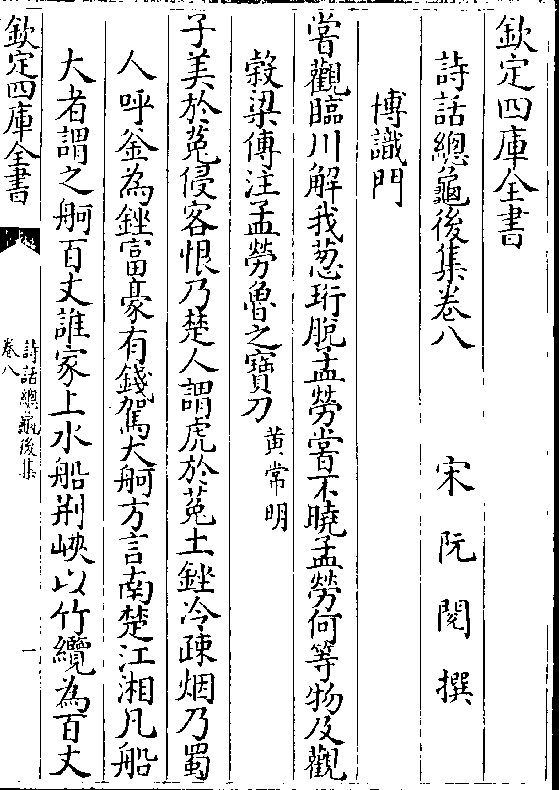 欽定四庫全書
詩話總龜後集卷八 宋 阮閱 撰
博識門
嘗觀臨川解我葱珩脫孟勞嘗不曉孟勞何等物及觀
穀梁傳注孟勞魯之寶刀 黄常明
子美於菟侵客恨乃楚人謂虎於菟土銼冷疎烟乃蜀
人呼釡為銼富豪有錢駕大舸方言南楚江湘凡船
大者謂之舸百丈誰家上水船荆峽以竹纜為百丈
欽定四庫全書
詩話總龜後集
卷八
一